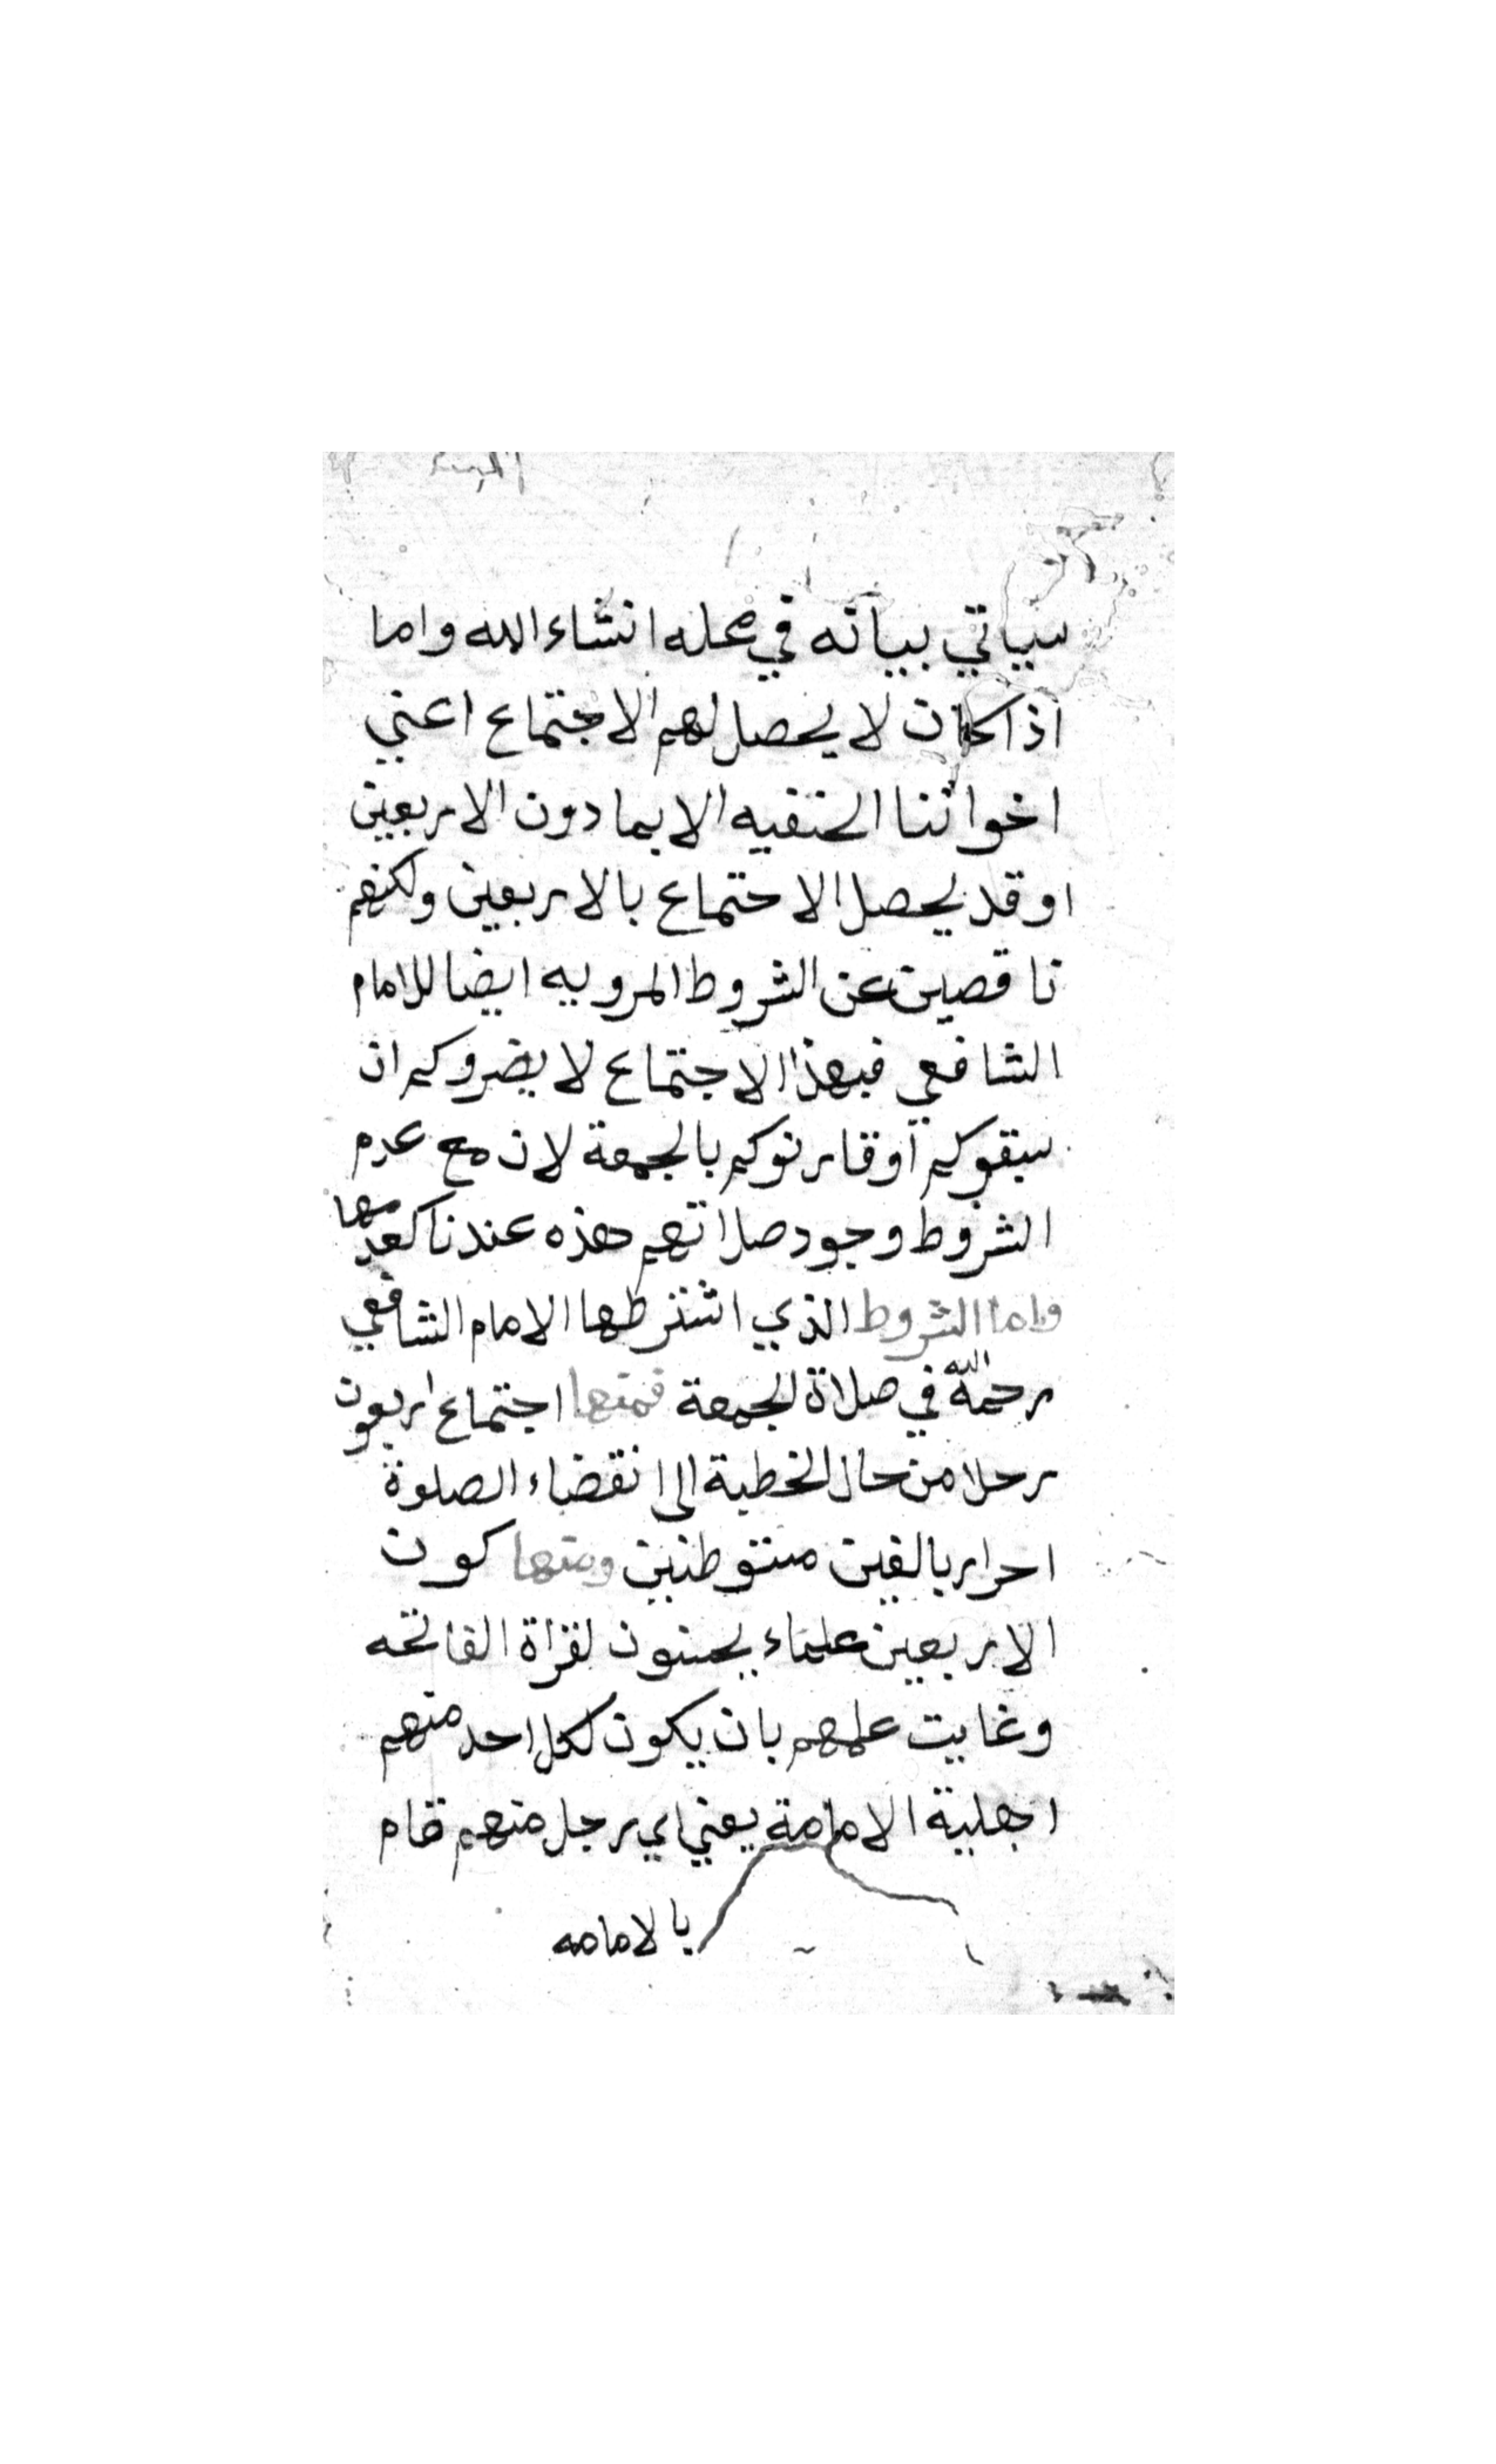 سياتي بيانه في محله انشاء الله واما
اذا كان لا يحصل لهم الاجتماع اعني
اخواننا الحنفيه الا بما دون الاربعين
او قد يحصل الاجتماع بالاربعين ولكنهم
ناقصين عن الشروط المرويه ايضا للامام
الشافعي فبهذا الاجتماع لا يضروكم ان
سبقوكم او قارنوكم بالجمعة لان مع عدم
الشروط وجود صلاتهم هذه عندنا كعدمها
واما الشروط الذي اشترطها الامام الشافعي
رحمه الله في صلاة الجمعة فمنها اجتماع اربعون
رجلا من حال الخطبة الى انقضاء الصلوة
احرار بالغين متوطنين ومنها كون
الاربعين علماء يحسنون لقراة الفاتحه
وغايت علمهم بان يكون لكل احد منهم
اهلية الامامة يعني اي رجل منهم قام
بالامامه